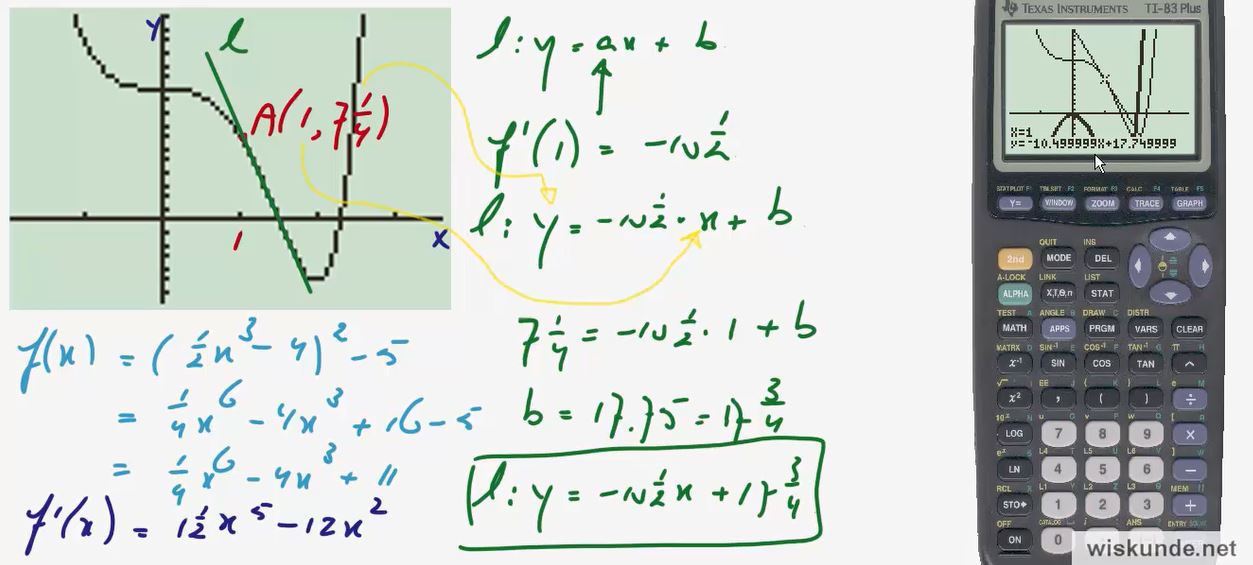 Y
l
A(1, 7 1/4)
1
x
f(x) = (1/2x³ - 4)² - 5
= 1/4x⁶ - 4x³ + 16 - 5
= 1/4x⁶ - 4x³ + 11
f'(x) = 1 1/2x⁵ - 12x²
l: y = ax + b
f'(1) = -10 1/2
l: y = -10 1/2 · x + b
7 1/4 = -10 1/2 · 1 + b
b = 17.75 = 17 3/4
l: y = -10 1/2x + 17 3/4
TEXAS INSTRUMENTS TI-83 Plus
X=1
y=-10.499999X+17.749999
STATPLOT F1 TBLSET F2 FORMAT F3 CALC F4 TABLE F5
Y= WINDOW ZOOM TRACE GRAPH
QUIT INS
2nd MODE DEL
A-LOCK LINK LIST
ALPHA X,T,Θ,n STAT
TEST A ANGLE B DRAW C DISTR
MATH APPS PRGM VARS CLEAR
MATRX D SIN⁻¹ E COS⁻¹ F TAN⁻¹ G π H
x⁻¹ SIN COS TAN ^
√ I EE J { K } L e M
x² , ( ) ÷
10ˣ N u O v P w Q [ R
LOG 7 8 9 ×
eˣ S L4 T L5 U L6 V ] W
LN 4 5 6 −
RCL X L1 Y L2 Z L3 Θ MEM "
STO▸ 1 2 3 +
OFF CATALOG i : ANS ? ENTRY SOLVE
ON 0
wiskunde.net